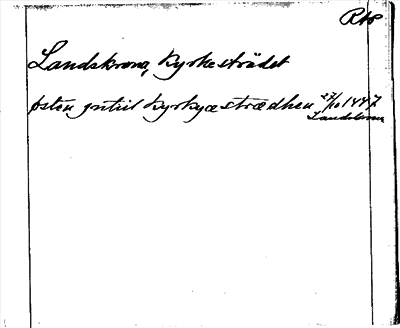 Landskrona, Kyrkesträdet
østen, Kyrkyæ strædhen 27/10 1447
Landskrona